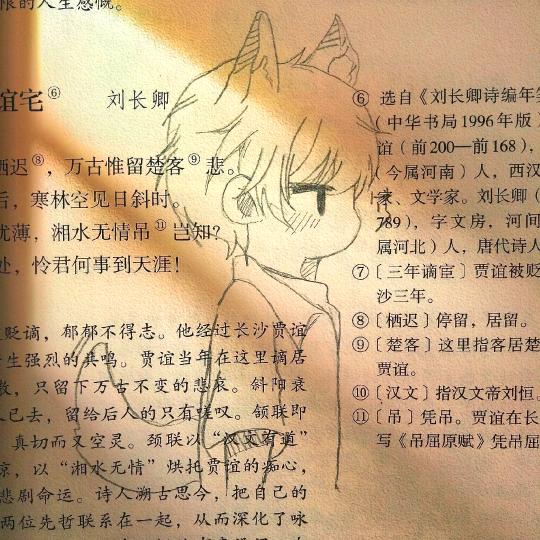 限的人生感慨。
谊宅⑥ 刘长卿
栖迟⑧，万古惟留楚客⑨悲。
后，寒林空见日斜时。
犹薄，湘水无情吊⑪岂知?
处，怜君何事到天涯!
贬谪，郁郁不得志。他经过长沙贾谊
生强烈的共鸣。贾谊当年在这里谪居
，只留下万古不变的悲哀。斜阳衰
人已去，留给后人的只有嗟叹。颔联即
真切而又空灵。颈联以“汉文有道”
，以“湘水无情”烘托贾谊的痴心，
悲剧命运。诗人溯古思今，把自己的
两位先哲联系在一起，从而深化了咏
⑥ 选自《刘长卿诗编年笺
（中华书局1996年版）
谊（前200—前168），
（今属河南）人，西汉
家、文学家。刘长卿（
789），字文房，河间
属河北）人，唐代诗人
⑦〔三年谪宦〕贾谊被贬
沙三年。
⑧〔栖迟〕停留，居留。
⑨〔楚客〕这里指客居楚
贾谊。
⑩〔汉文〕指汉文帝刘恒。
⑪〔吊〕凭吊。贾谊在长
写《吊屈原赋》凭吊屈